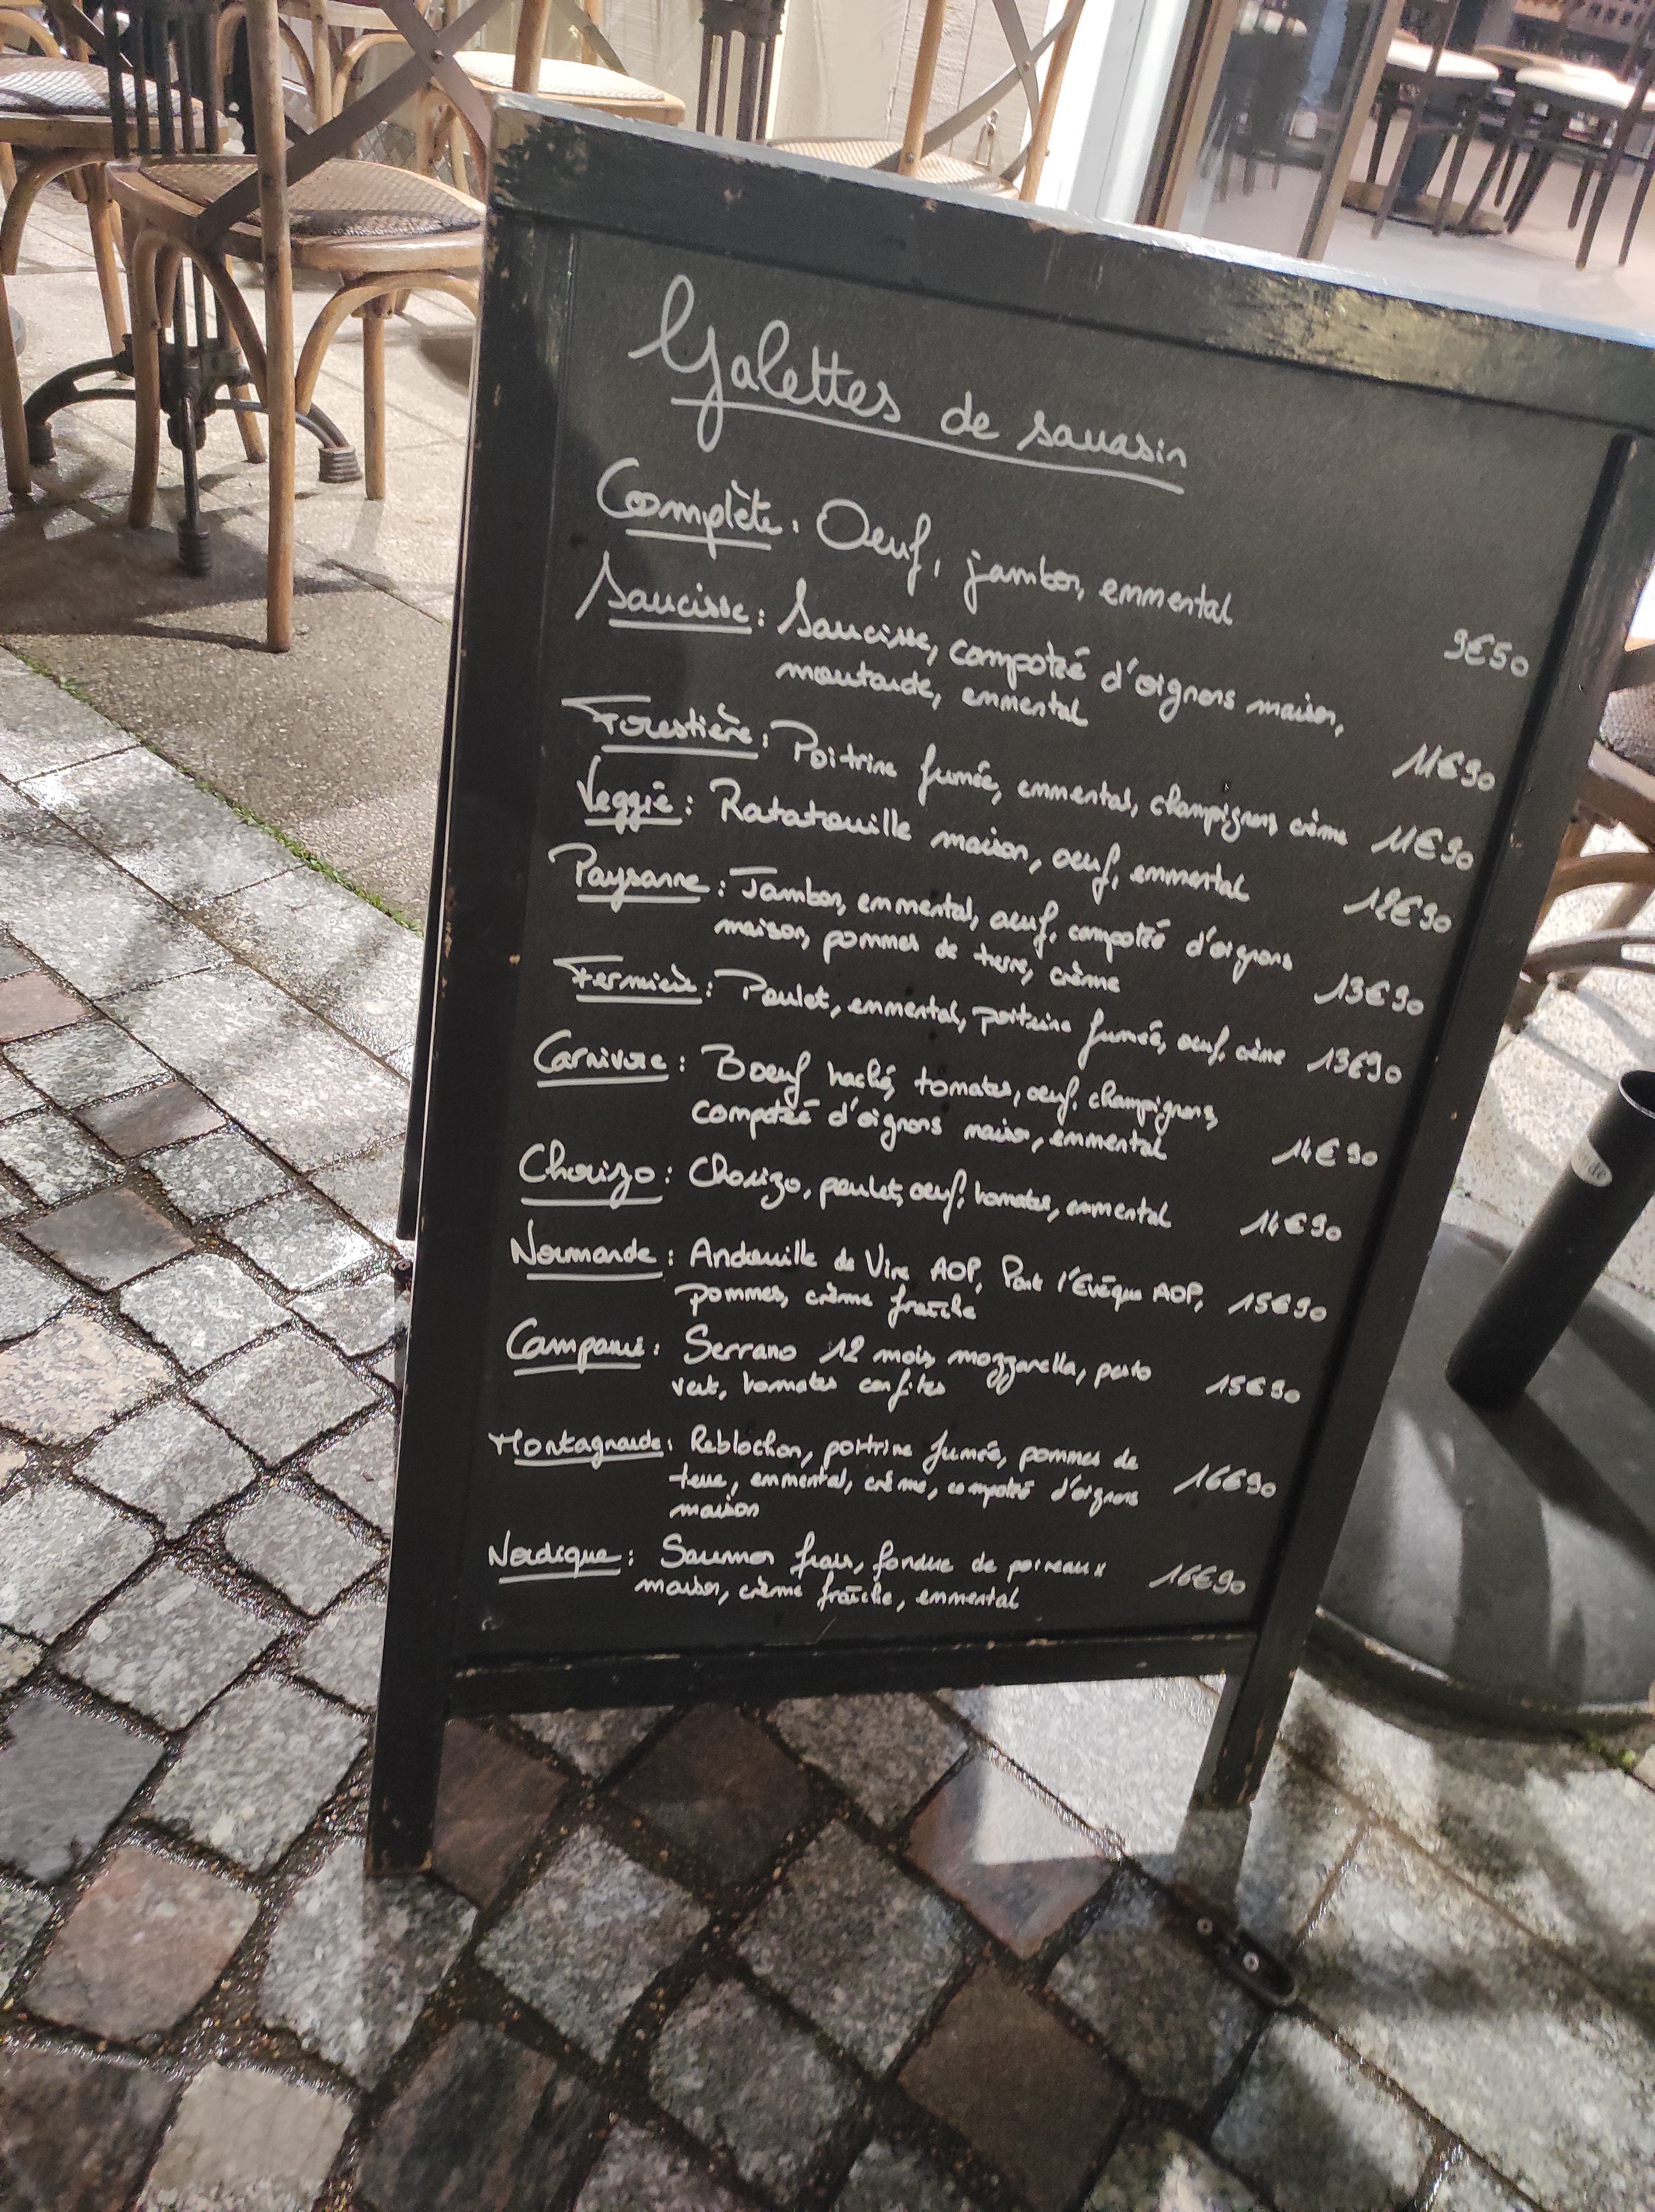 Galettes de sarrasin
Complète : Oeuf, jambon, emmental 9€50
Saucisse : Saucisse, compotée d'oignons maison,
moutarde, emmental 11€90
Forestière : Poitrine fumée, emmental, champignons crème 11€90
Veggie : Ratatouille maison, oeuf, emmental 12€90
Paysanne : Jambon, emmental, oeuf, compotée d'oignons
maison, pommes de terre, crème 13€90
Fermière : Poulet, emmental, poitrine fumée, oeuf, crème 13€90
Carnivore : Boeuf haché, tomates, oeuf, champignons,
compotée d'oignons maison, emmental 14€90
Chorizo : Chorizo, poulet, oeuf, tomates, emmental 14€90
Normande : Andouille de Vire AOP, Pont l'Evêque AOP, 15€90
pommes, crème fraîche
Campanie : Serrano 12 mois, mozzarella, pesto 15€90
vert, tomates confites
Montagnarde : Reblochon, poitrine fumée, pommes de 16€90
terre, emmental, crème, compotée d'oignons
maison
Nordique : Saumon frais, fondue de poireaux 16€90
maison, crème fraîche, emmental